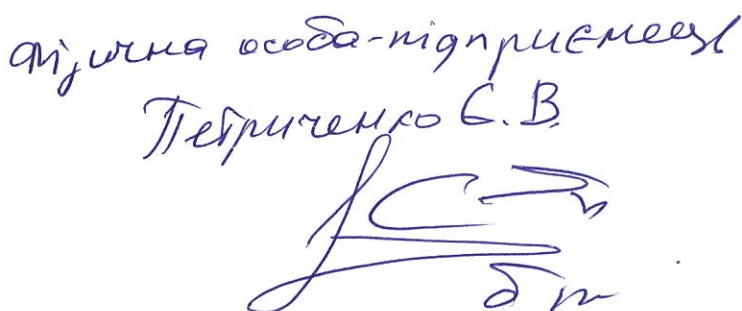 Фізична особа-підприємець
Петриченко Є. В.
б п